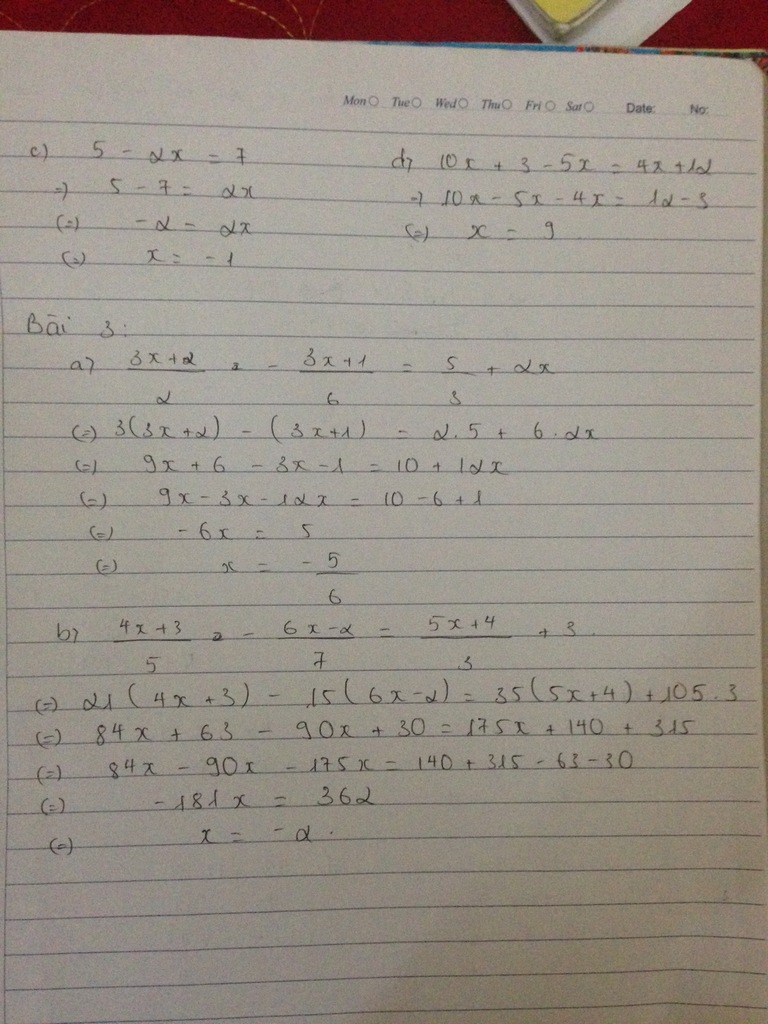 Mon Tue Wed Thu Fri Sat Date: No:
c) 5 - 2x = 7
=) 5 - 7 = 2x
(=) -2 = 2x
(=) x = -1
d) 10x + 3 - 5x = 4x + 12
=) 10x - 5x - 4x = 12 - 3
(=) x = 9
Bài 3:
a) (3x+2)/2 - (3x+1)/6 = 5/3 + 2x
(=) 3(3x+2) - (3x+1) = 2.5 + 6.2x
(=) 9x + 6 - 3x - 1 = 10 + 12x
(=) 9x - 3x - 12x = 10 - 6 + 1
(=) -6x = 5
(=) x = -5/6
b) (4x+3)/5 - (6x-2)/7 = (5x+4)/3 + 3.
(=) 21(4x+3) - 15(6x-2) = 35(5x+4) + 105.3
(=) 84x + 63 - 90x + 30 = 175x + 140 + 315
(=) 84x - 90x - 175x = 140 + 315 - 63 - 30
(=) -181x = 362
(=) x = -2.